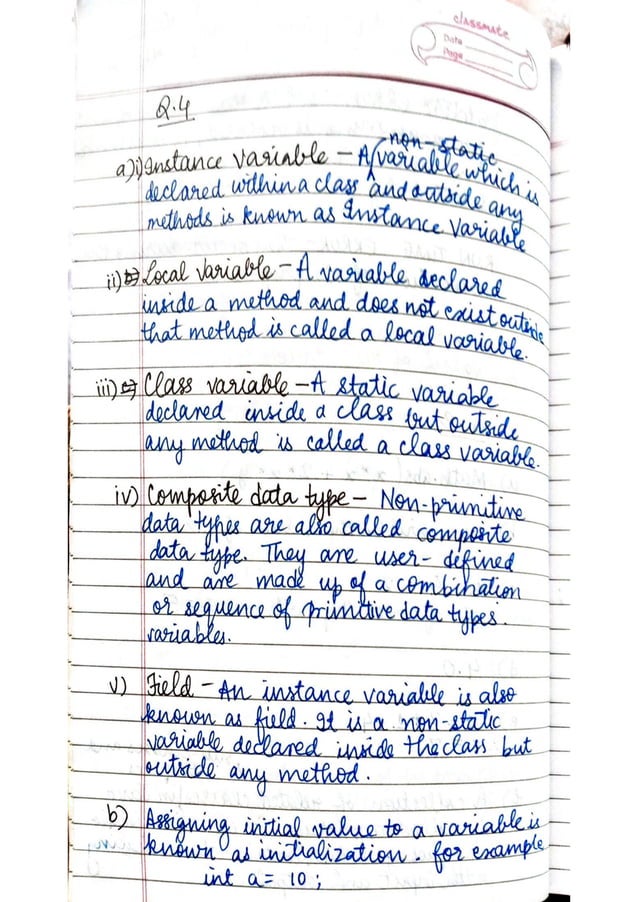 classmate
Date
Page
Q.4
a) i) Instance variable - A non-static variable which is
declared within a class and outside any
methods is known as Instance Variable
ii) Local variable - A variable declared
inside a method and does not exist outside
that method is called a local variable.
iii) Class variable - A static variable
declared inside a class but outside
any method is called a class variable.
iv) Composite data type - Non-primitive
data types are also called composite
data type. They are user-defined
and are made up of a combination
or sequence of primitive data types.
variables.
v) Field - An instance variable is also
known as field. It is a non-static
variable declared inside the class but
outside any method.
b) Assigning initial value to a variable is
known as initialization. for example
int a = 10;